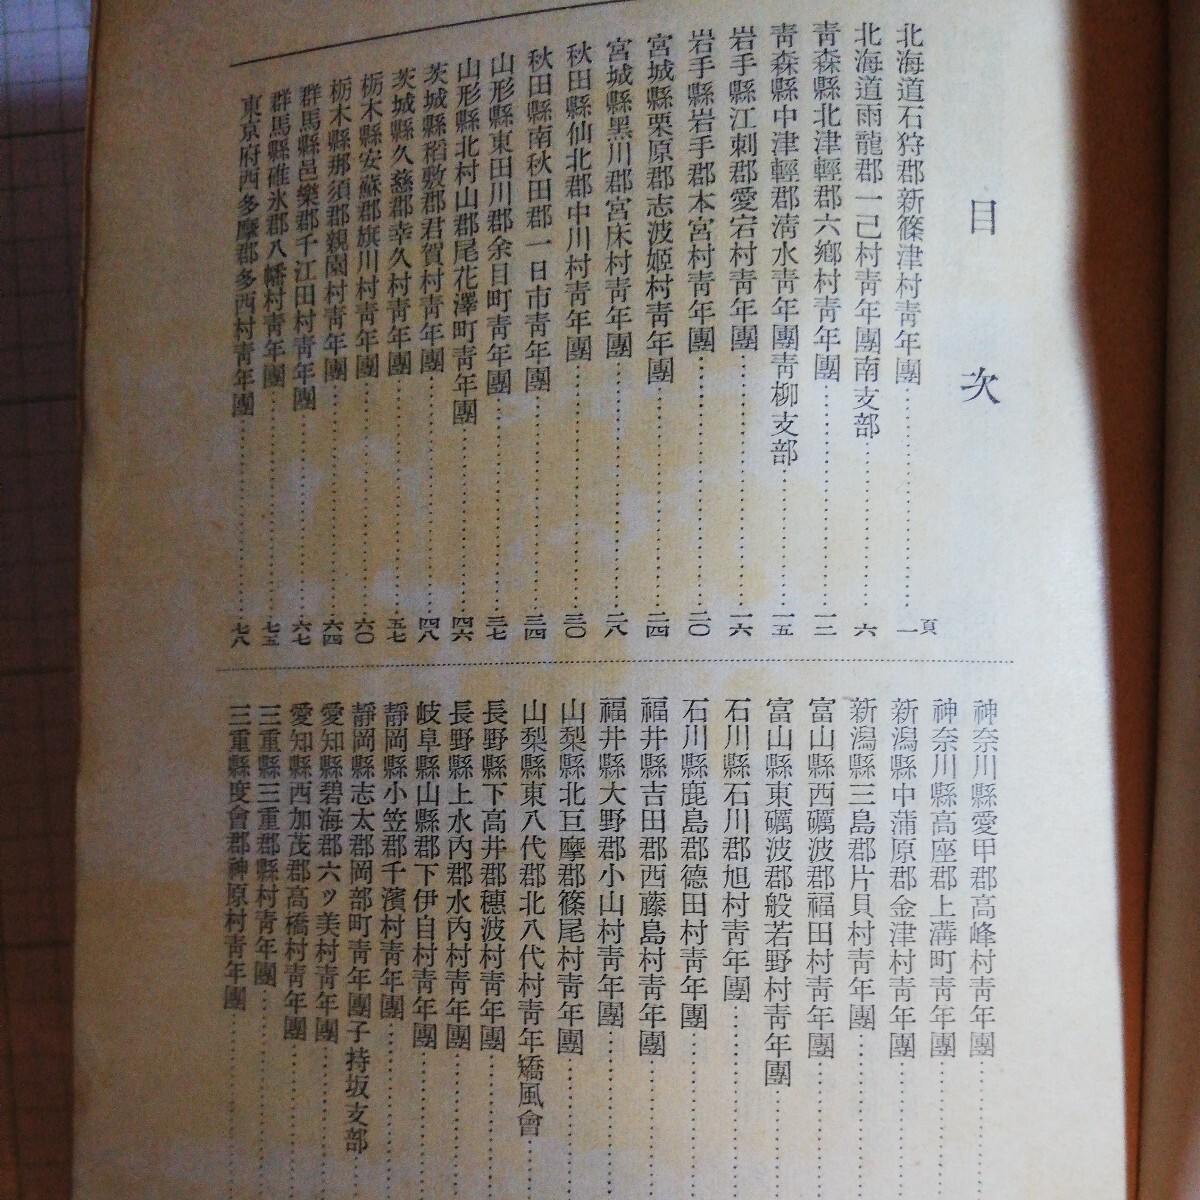 目次
北海道石狩郡新篠津村靑年團 一頁
北海道雨龍郡一已村靑年團南支部 六
靑森縣北津輕郡六鄕村靑年團 一二
靑森縣中津輕郡淸水靑年團靑柳支部 一五
岩手縣江刺郡愛宕村靑年團 一六
岩手縣岩手郡本宮村靑年團 二〇
宮城縣栗原郡志波姬村靑年團 二四
宮城縣黑川郡宮床村靑年團 二八
秋田縣仙北郡中川村靑年團 三〇
秋田縣南秋田郡一日市靑年團 三四
山形縣東田川郡余目町靑年團 三七
山形縣北村山郡尾花澤町靑年團 四六
茨城縣稻敷郡君賀村靑年團 四八
茨城縣久慈郡幸久村靑年團 五七
栃木縣安蘇郡旗川村靑年團 六〇
栃木縣那須郡親園村靑年團 六四
群馬縣邑樂郡千江田村靑年團 六七
群馬縣碓氷郡八幡村靑年團 七五
東京府西多摩郡多西村靑年團 七八
神奈川縣愛甲郡高峰村靑年團
神奈川縣高座郡上溝町靑年團
新潟縣中蒲原郡金津村靑年團
新潟縣三島郡片貝村靑年團
富山縣西礪波郡福田村靑年團
富山縣東礪波郡般若野村靑年團
石川縣石川郡旭村靑年團
石川縣鹿島郡德田村靑年團
福井縣吉田郡西藤島村靑年團
福井縣大野郡小山村靑年團
山梨縣北巨摩郡篠尾村靑年團
山梨縣東八代郡北八代村靑年矯風會
長野縣下高井郡穗波村靑年團
長野縣上水內郡水內村靑年團
岐阜縣山縣郡下伊自村靑年團
靜岡縣小笠郡千濱村靑年團
靜岡縣志太郡岡部町靑年團子持坂支部
愛知縣碧海郡六ッ美村靑年團
愛知縣西加茂郡高橋村靑年團
三重縣三重郡縣村靑年團
三重縣度會郡神原村靑年團